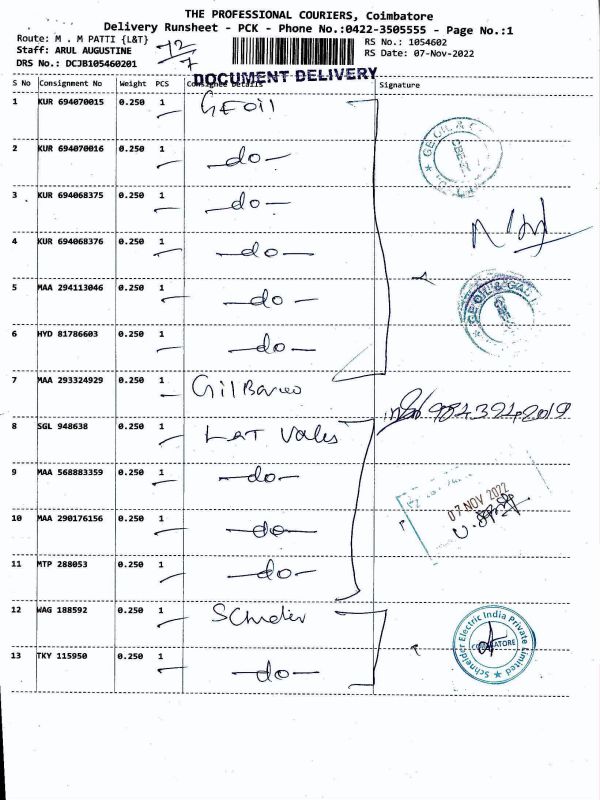 THE PROFESSIONAL COURIERS, Coimbatore
Delivery Runsheet - PCK - Phone No.:0422-3505555 - Page No.:1
Route: M . M PATTI {L&T}
RS No.: 1054602
Staff: ARUL AUGUSTINE
RS Date: 07-Nov-2022
DRS No.: DCJB105460201
72/7
DOCUMENT DELIVERY
S No Consignment No Weight PCS Consignee Details Signature
1 KUR 694070015 0.250 1 GEOil
2 KUR 694070016 0.250 1 -do-
3 KUR 694068375 0.250 1 -do-
4 KUR 694068376 0.250 1 -do-
5 MAA 294113046 0.250 1 -do-
GE OIL & GAS
6 HYD 81786603 0.250 1 -do-
7 MAA 293324929 0.250 1 Gilbarco
9843942019
8 SGL 948638 0.250 1 L&T Valves
9 MAA 568883359 0.250 1 -do-
07 NOV 2022
10 MAA 290176156 0.250 1 -do-
11 MTP 288053 0.250 1 -do-
12 WAG 188592 0.250 1 Schneider
Schneider Electric India Private Limited
COIMBATORE
13 TKY 115950 0.250 1 -do-